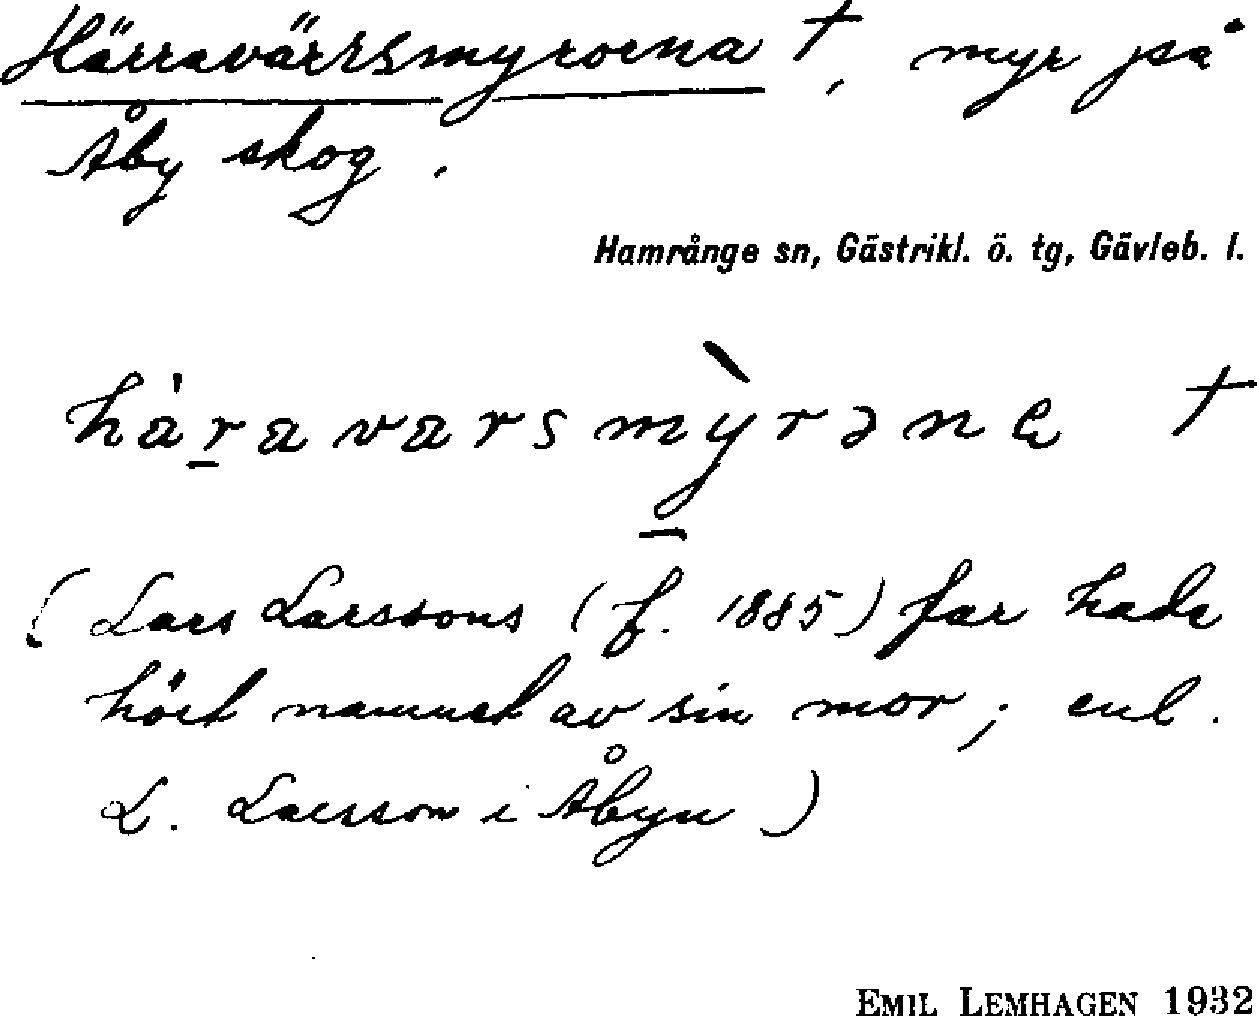 Härravärrsmyrorna †, myr på
Åby skog.
Hamrånge sn, Gästrikl. ö. tg, Gävleb. l.
hàr̲avarsmỳ̲rəna †
(Lars Larssons (f. 1885) far hade
hört namnet av sin mor; enl.
L. Larsson i Åbyn)
EMIL LEMHAGEN 1932